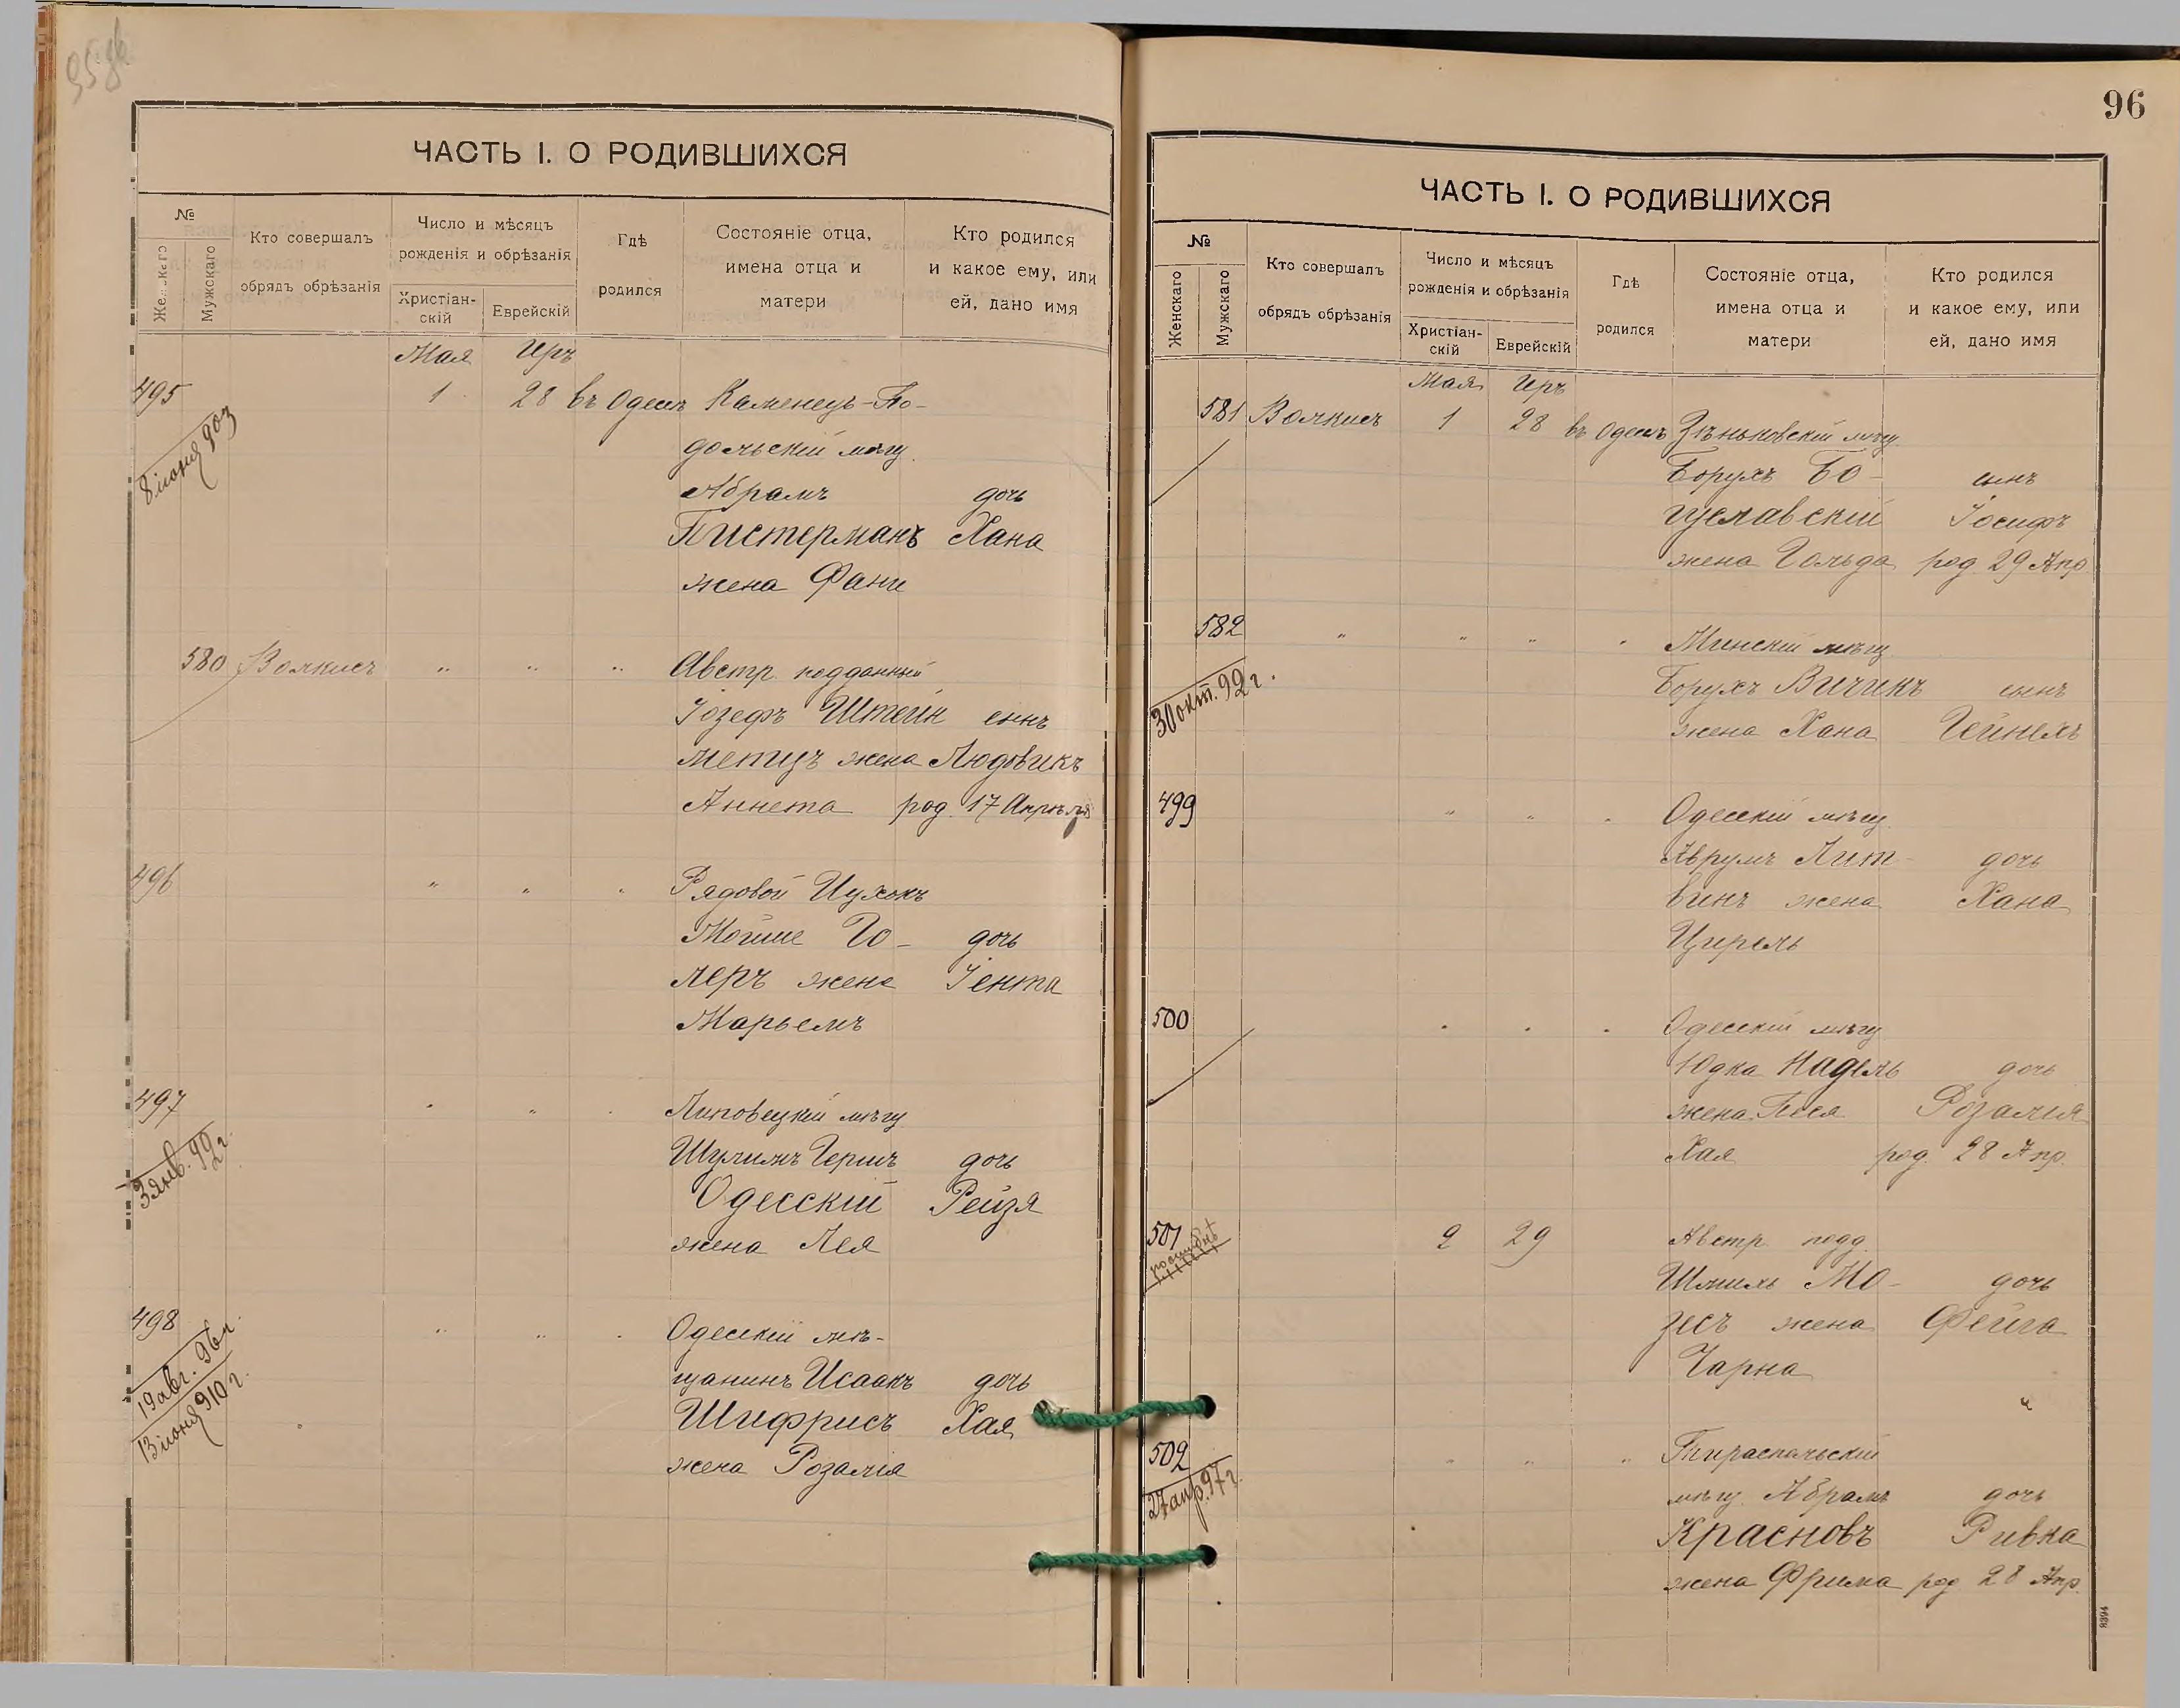 ЧАСТЬ I. О РОДИВШИХСЯ
№
Женскаго
Мужскаго
Кто совершалъ
обрядъ обрѣзанія
Число и мѣсяцъ
рожденія и обрѣзанія
Христіан-
скій
Еврейскій
Гдѣ
родился
Состояніе отца,
имена отца и
матери
Кто родился
и какое ему, или
ей, дано имя
Мая Иръ
495 1 28 въ Одессѣ Каменецъ-По-
8 іюня 903
дольскій мѣщ.
Абрамъ дочь
Пистерманъ Хана
жена Фани
580 Волкисъ " " " Австр. подданный
Іозефъ Штейн сынъ
метцъ жена Людовикъ
Аннета род. 17 Апрѣля
496 " " " Рядовой Ицхокъ
Мойше Го- дочь
леръ жена Іента
Марьемъ
497 " " " Липовецкій мѣщ
3 янв. 92 г.
Шулимъ Гершъ дочь
Одесскій Рейзя
жена Лея
498 " " " Одесскій мѣ-
19 авг. 96 г.
13 іюня 910 г.
щанинъ Исаакъ дочь
Шифрисъ Хая
жена Розалія
96
ЧАСТЬ I. О РОДИВШИХСЯ
№
Женскаго
Мужскаго
Кто совершалъ
обрядъ обрѣзанія
Число и мѣсяцъ
рожденія и обрѣзанія
Христіан-
скій
Еврейскій
Гдѣ
родился
Состояніе отца,
имена отца и
матери
Кто родился
и какое ему, или
ей, дано имя
Мая Иръ
581 Волкисъ 1 28 въ Одессѣ Зѣньковскій мѣщ.
Борухъ Бо- сынъ
гуславскій Іосифъ
жена Гольда род. 29 Апр.
582 " " " " Минскій мѣщ
30 окт. 92 г.
Борухъ Вичикъ сынъ
жена Хана Гейнехъ
499 " " " Одесскій мѣщ.
Аврумъ Лит- дочь
винъ жена Хана
Цирель
500 " " " Одесскій мѣщ
Юдка Надель дочь
жена Песя Розалія
Хая род. 28 Апр.
501 2 29 Австр. подд.
Шмиль Мо- дочь
зесъ жена Фейга
Чарна
502 " " " Тираспольскій
27 апр. 97 г.
мѣщ. Абрамъ дочь
Красновъ Ривка
жена Фрима род. 28 Апр.
8394